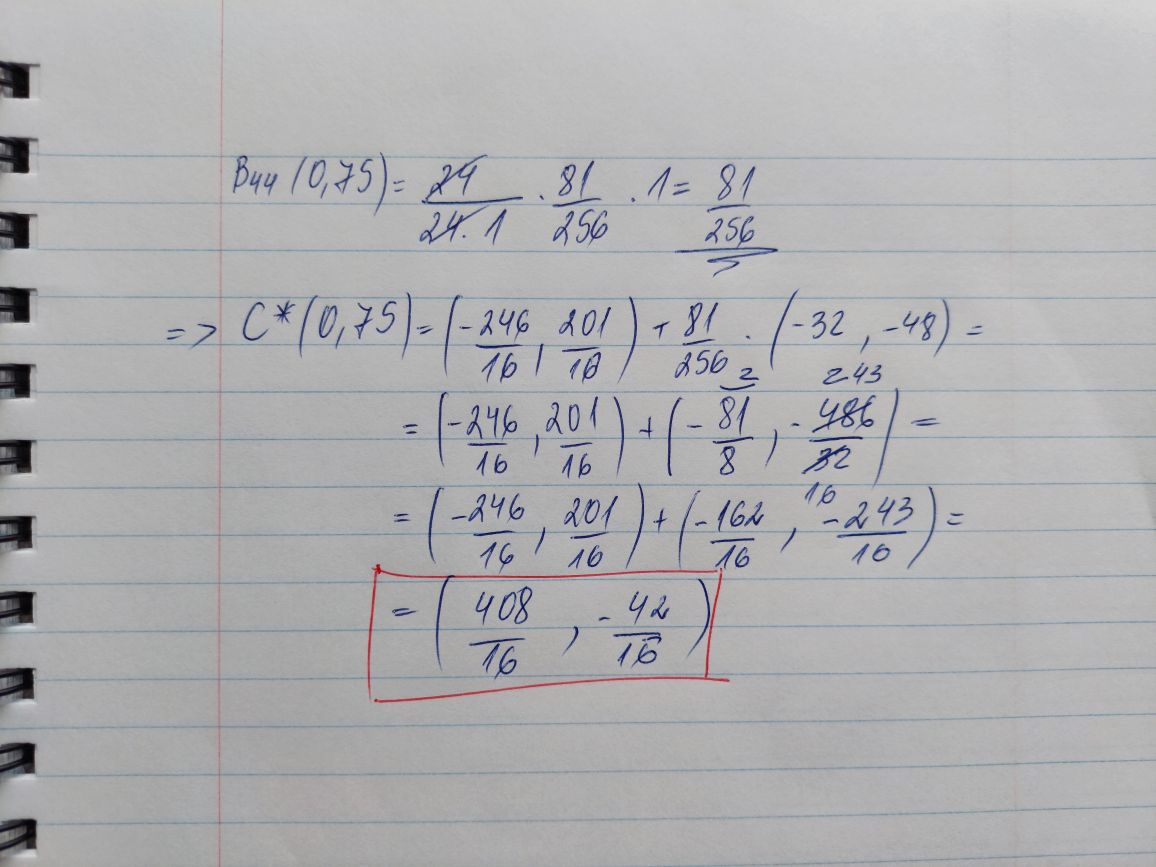 B₄₄ (0,75) = 24/24·1 · 81/256 · 1 = 81/256
=> C*(0,75) = (-246/16, 201/16) + 81/256 · (-32, -48) =
= (-246/16, 201/16) + (-81/8, -486/32) = 2 243 16
= (-246/16, 201/16) + (-162/16, -243/16) =
= (408/16, -42/16)